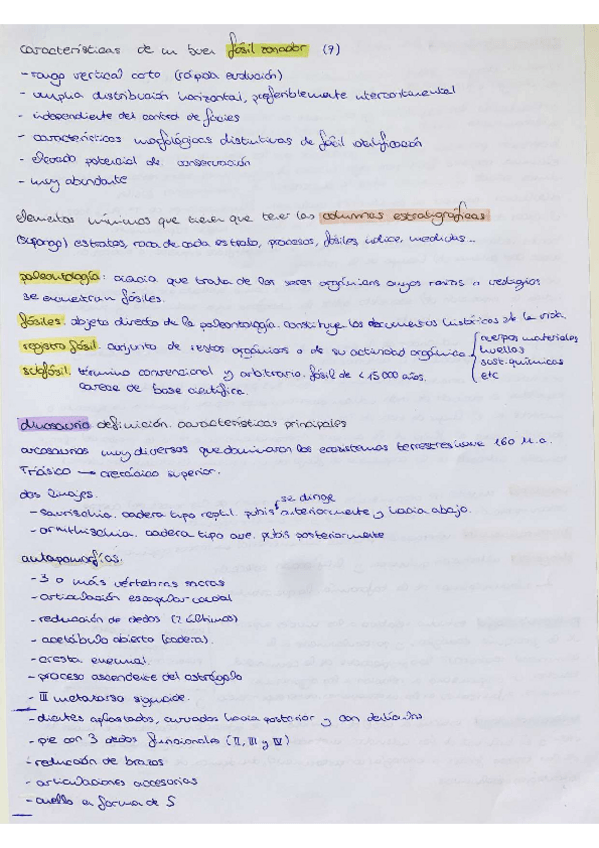 características de un buen fósil zonador (7)
- rango vertical corto (rápida evolución)
- amplia distribución horizontal, preferiblemente intercontinental
- independiente del control de facies
- características morfológicas distintivas de fácil identificación
- elevado potencial de conservación
- muy abundante
elementos mínimos que tienen que tener las columnas estratigráficas
(supongo) estratos, roca de cada estrato, procesos, fósiles índice, medidas...
paleontología: ciencia que trata de los seres orgánicos cuyos restos o vestigios
se encuentran fósiles.
fósiles. objeto directo de la paleontología. constituye los documentos históricos de la vida.
registro fósil. conjunto de restos orgánicos o de su actividad orgánica { cuerpos materiales
huellas
sust. químicas
etc
subfósil. término convencional y arbitrario. fósil de < 15 000 años.
carece de base científica.
dinosauria definición. características principales
arcosaurios muy diversos que dominaron los ecosistemas terrestres 160 m.a.
Triásico → cretácico superior.
dos linajes.
- saurischia. cadera tipo reptil. pubis se dirige anteriormente y hacia abajo.
- ornithischia. cadera tipo ave. pubis posteriormente
autapomofías:
- 3 o más vértebras sacras
- articulación escapular caudal
- reducción de dedos (2 últimos)
- acetábulo abierto (cadera).
- cresta cnemial.
- proceso ascendente del astrágalo
- III metatarso sigmoide.
- dientes aplastados, curvados hacia posterior y con dentículos
- pie con 3 dedos funcionales (II, III y IV)
- reducción de brazos
- articulaciones accesorias
- cuello en forma de S